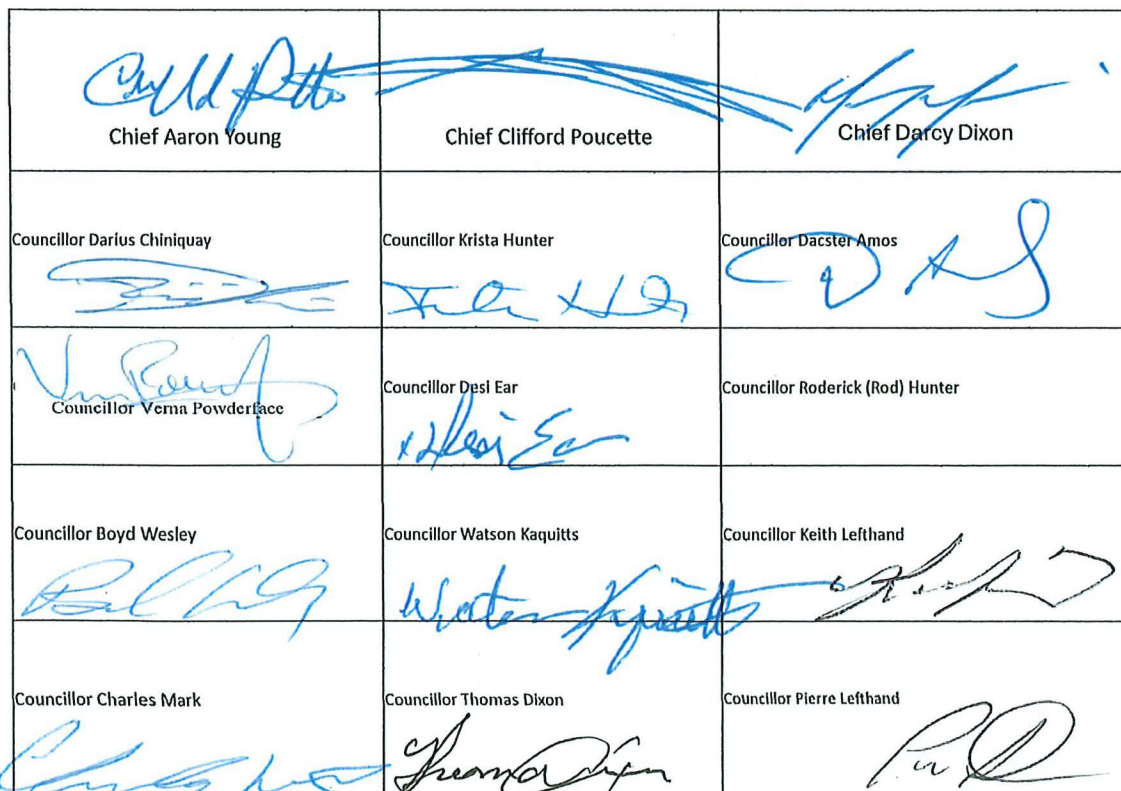 Chief Aaron Young
Chief Clifford Poucette
Chief Darcy Dixon
Councillor Darius Chiniquay
Councillor Krista Hunter
Councillor Dacster Amos
Councillor Verna Powderface
Councillor Desi Ear
Desi Ear
Councillor Roderick (Rod) Hunter
Councillor Boyd Wesley
Councillor Watson Kaquitts
Watson Kaquitts
Councillor Keith Lefthand
Councillor Charles Mark
Councillor Thomas Dixon
Thomas Dixon
Councillor Pierre Lefthand